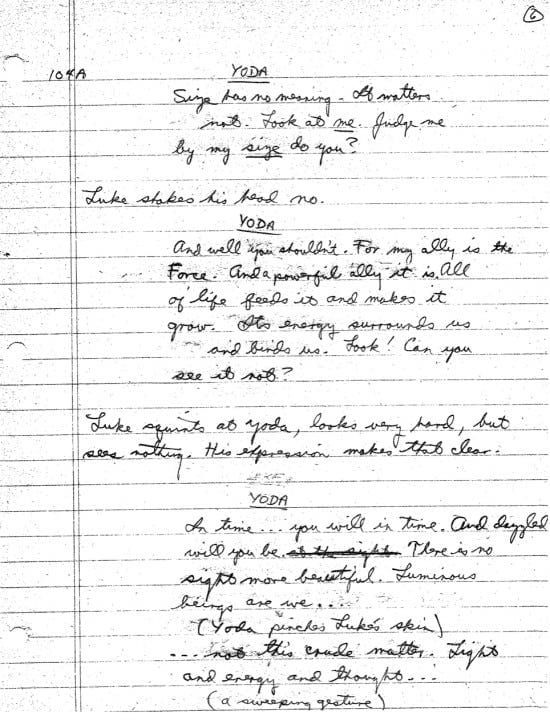 6
104A
YODA
Size has no meaning - It matters
not. Look at me. Judge me
by my size do you?
Luke shakes his head no.
YODA
And well you shouldn't. For my ally is the
Force. And a powerful ally it is. All
of life feeds it and makes it
grow. Its energy surrounds us
and binds us. Look! Can you
see it not?
Luke squints at Yoda, looks very hard, but
sees nothing. His expression makes that clear.
YODA
In time... you will in time. And dazzled
will you be at the sight. There is no
sight more beautiful. Luminous
beings are we....
(Yoda pinches Luke's skin)
... not this crude matter. Light
and energy and thought...
(a sweeping gesture)